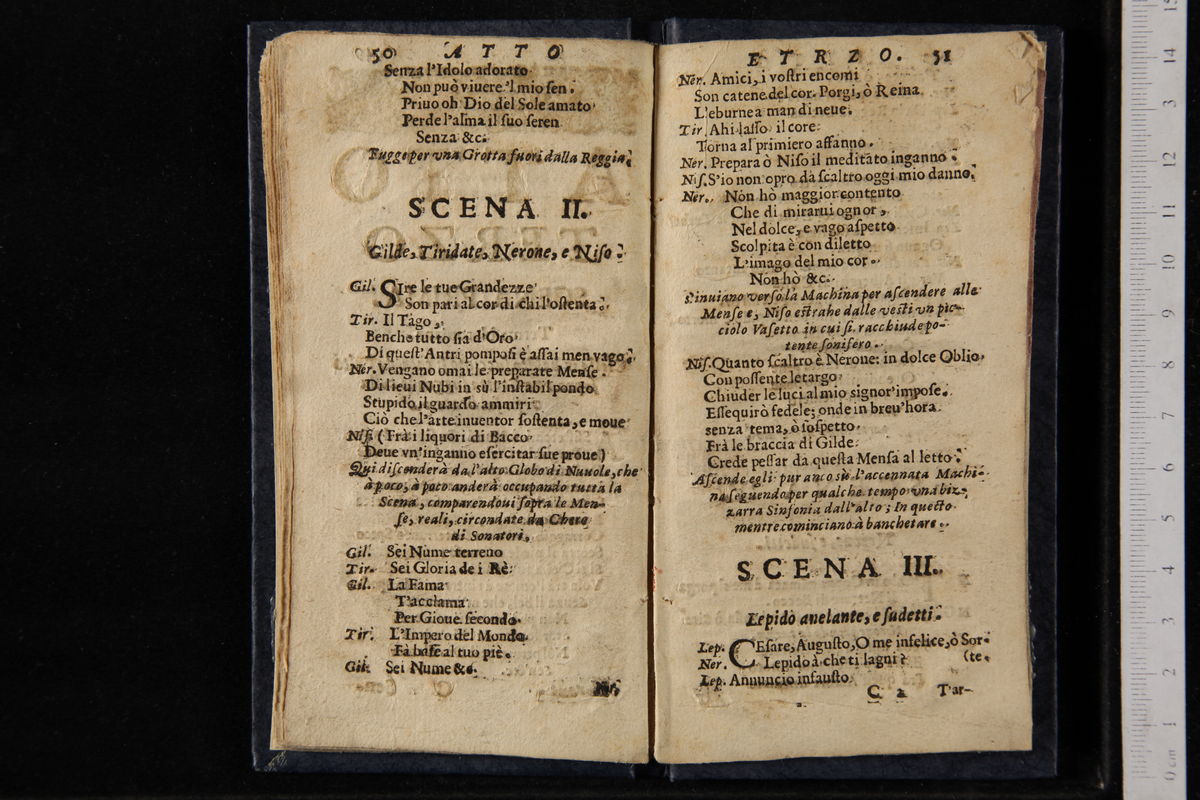 50 ATTO
Senza l'Idolo adorato
Non può viuere 'l mio sen.
Priuo oh Dio del Sole amato
Perde l'alma il suo seren
Senza &c.
Fugge per vna Grotta fuori dalla Reggia.
SCENA II.
Gilde, Tiridate, Nerone, e Niso.
Gil. SIre le tue Grandezze
Son pari al cor di chi l'ostenta.
Tir. Il Tago,
Benche tutto sia d'Oro
Di quest'Antri pomposi è assai men vago.
Ner. Vengano omai le preparate Mense
Di lieui Nubi in sù l'instabil pondo
Stupido il guardo ammiri
Ciò che l'arte inuentor sostenta, e moue
Nis. (Frà i liquori di Bacco
Deue vn'inganno esercitar sue proue)
Qui discenderà da l'alto Globo di Nuuole, che
à poco, à poco anderà occupando tutta la
Scena, comparendoui sopra le Men-
se, reali, circondate da Choro
di Sonatori,
Gil. Sei Nume terreno
Tir. Sei Gloria de i Rè:
Gil. La Fama
T'acclama
Per Gioue secondo.
Tir. L'Impero del Mondo
Fà base al tuo piè.
Gil. Sei Nume &c.
Ner.
ETRZO. 51
Ner. Amici, i vostri encomi
Son catene del cor. Porgi, ò Reina
L'eburnea man di neue.
Tir. Ahi lasso il core
Torna al primiero affanno.
Ner. Prepara ò Niso il meditato inganno.
Nis. S'io non opro da scaltro oggi mio danno.
Ner. Non hò maggior contento
Che di mirarui ognor,
Nel dolce, e vago aspetto
Scolpita è con diletto
L'imago del mio cor.
Non hò &c.
S'inuiano verso la Machina per ascendere alle
Mense e, Niso estrahe dalle vesti vn pic-
ciolo Vasetto in cui si racchiude po-
tente sonifero.
Nis. Quanto scaltro è Nerone: in dolce Oblio
Con possente letargo
Chiuder le luci al mio signor'impose.
Essequirò fedele; onde in breu'hora
senza tema, ò sospetto
Frà le braccia di Gilde
Crede pessar da questa Mensa al letto.
Ascende egli pur anco sù l'accennata Machi-
na seguendo per qualche tempo vna biz-
zarra Sinfonia dall'alto; In questo
mentre cominciano à banchetare.
SCENA III.
Lepido anelante, e sudetti.
Lep. CEsare, Augusto, O me infelice, ò Sor-
Ner. Lepido à che ti lagni? (te.
Lep. Annuncio infausto
C 2 T'ar-